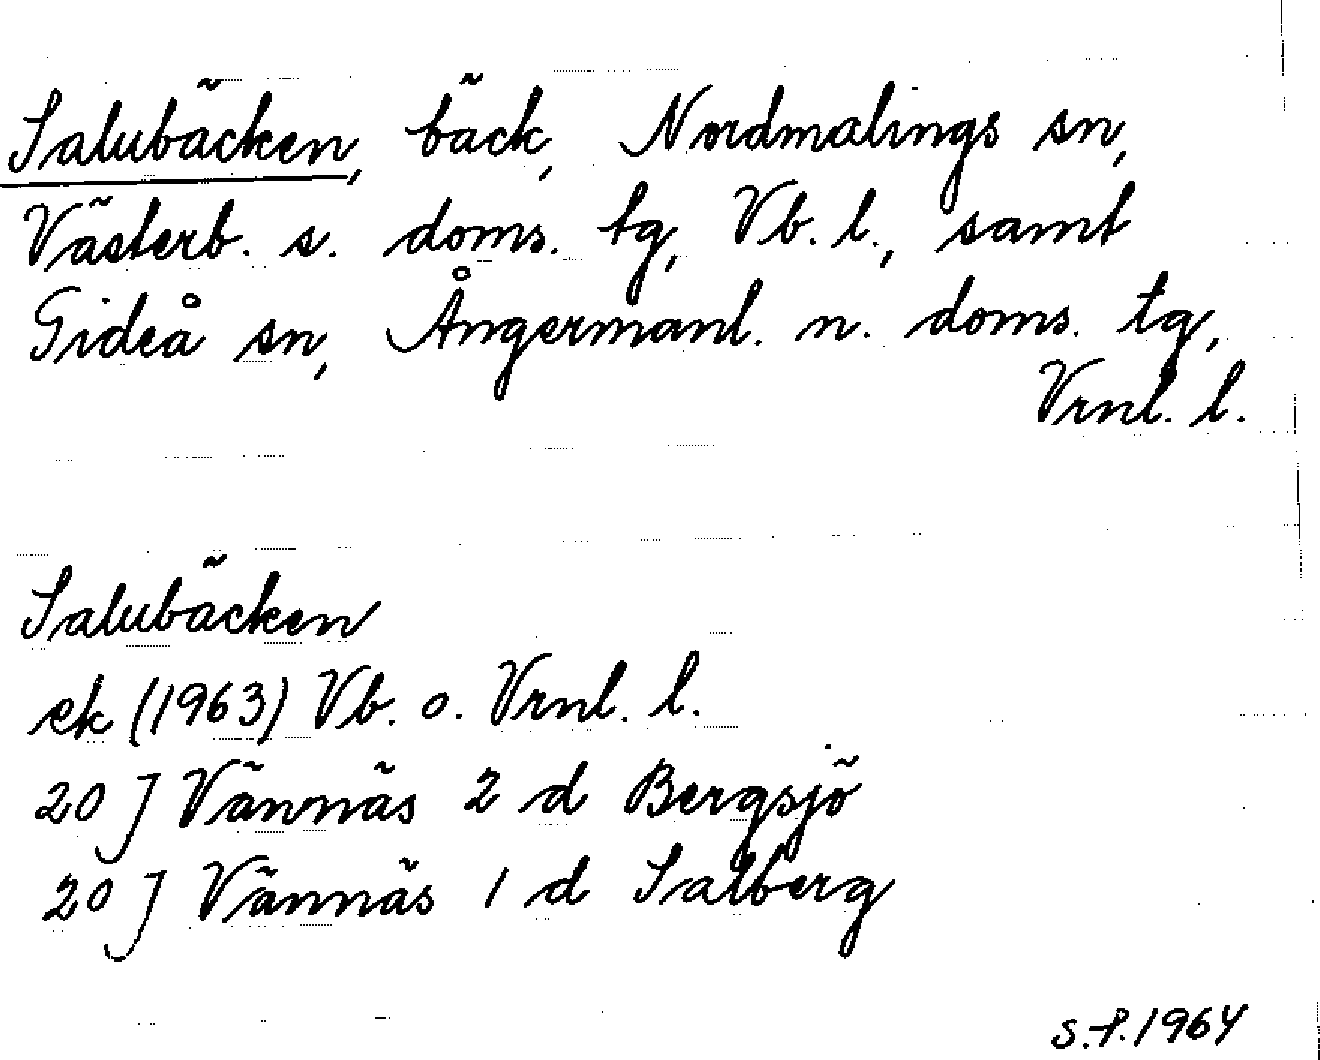 Salubäcken, bäck, Nordmalings sn,
Västerb. s. doms. tg, Vb. l., samt
Gideå sn, Ångermanl. n. doms. tg,
Vrnl. l.
Salubäcken
ek (1963) Vb. o. Vrnl. l.
20 J Vännäs 2 d Bergsjö
20 J Vännäs 1 d Salberg
S.F. 1964